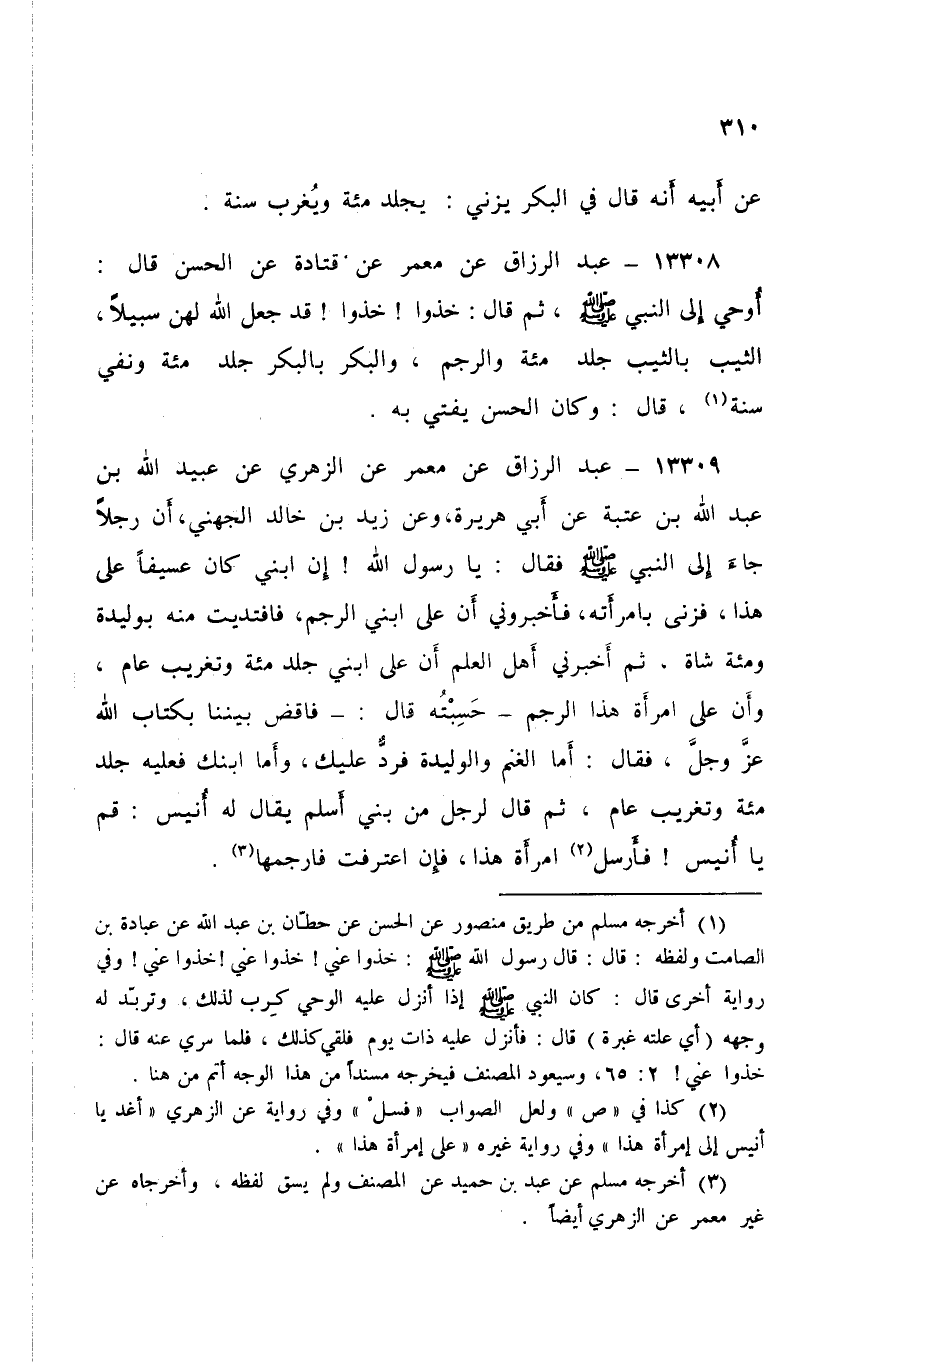 ٣١٠
عن أَبيه أَنه قال في البكر يزني : يجلد مئة ويُغرب سنة .
١٣٣٠٨ – عبد الرزاق عن معمر عن قتادة عن الحسن قال :
أُوحي إلى النبي ﷺ ، ثم قال : خذوا ! خذوا ! قد جعل الله لهن سبيلاً ،
الثيب بالثيب جلد مئة والرجم ، والبكر بالبكر جلد مئة ونفي
سنة(١) ، قال : وكان الحسن يفتي به .
١٣٣٠٩ – عبد الرزاق عن معمر عن الزهري عن عبيد الله بن
عبد الله بن عتبة عن أَبي هريرة، وعن زيد بن خالد الجهني، أَن رجلاً
جاءَ إلى النبي ﷺ فقال : يا رسول الله ! إن ابني كان عسيفاً على
هذا ، فزنى بامرأَته، فأَخبروني أَن على ابني الرجم، فافتديت منه بوليدة
ومئة شاة . ثم أَخبرني أَهل العلم أَن على ابني جلد مئة وتغريب عام ،
وأَن على امرأَة هذا الرجم – حَسِبْتُه قال : – فاقض بيننا بكتاب الله
عزَّ وجلَّ ، فقال : أَما الغنم والوليدة فردٌّ عليك، وأَما ابنك فعليه جلد
مئة وتغريب عام ، ثم قال لرجل من بني أَسلم يقال له أُنيس : قم
يا أُنيس ! فأَرسل(٢) امرأَة هذا ، فإن اعترفت فارجمها(٣) .
(١) أخرجه مسلم من طريق منصور عن الحسن عن حطّان بن عبد الله عن عبادة بن
الصامت ولفظه : قال : قال رسول الله ﷺ : خذوا عني ! خذوا عني ! خذوا عني ! وفي
رواية أخرى قال : كان النبي ﷺ إذا أنزل عليه الوحي كرِب لذلك ، وتربّد له
وجهه (أي علته غبرة ) قال : فأنزل عليه ذات يوم فلقي كذلك ، فلما سري عنه قال :
خذوا عني ! ٢ : ٦٥، وسيعود المصنف فيخرجه مسنداً من هذا الوجه أتم من هنا .
(٢) كذا في « ص » ولعل الصواب « فسلْ » وفي رواية عن الزهري « أغد يا
أنيس إلى إمرأة هذا » وفي رواية غيره « على إمرأة هذا » .
(٣) أخرجه مسلم عن عبد بن حميد عن المصنف ولم يسق لفظه ، وأخرجاه عن
غير معمر عن الزهري أيضاً .